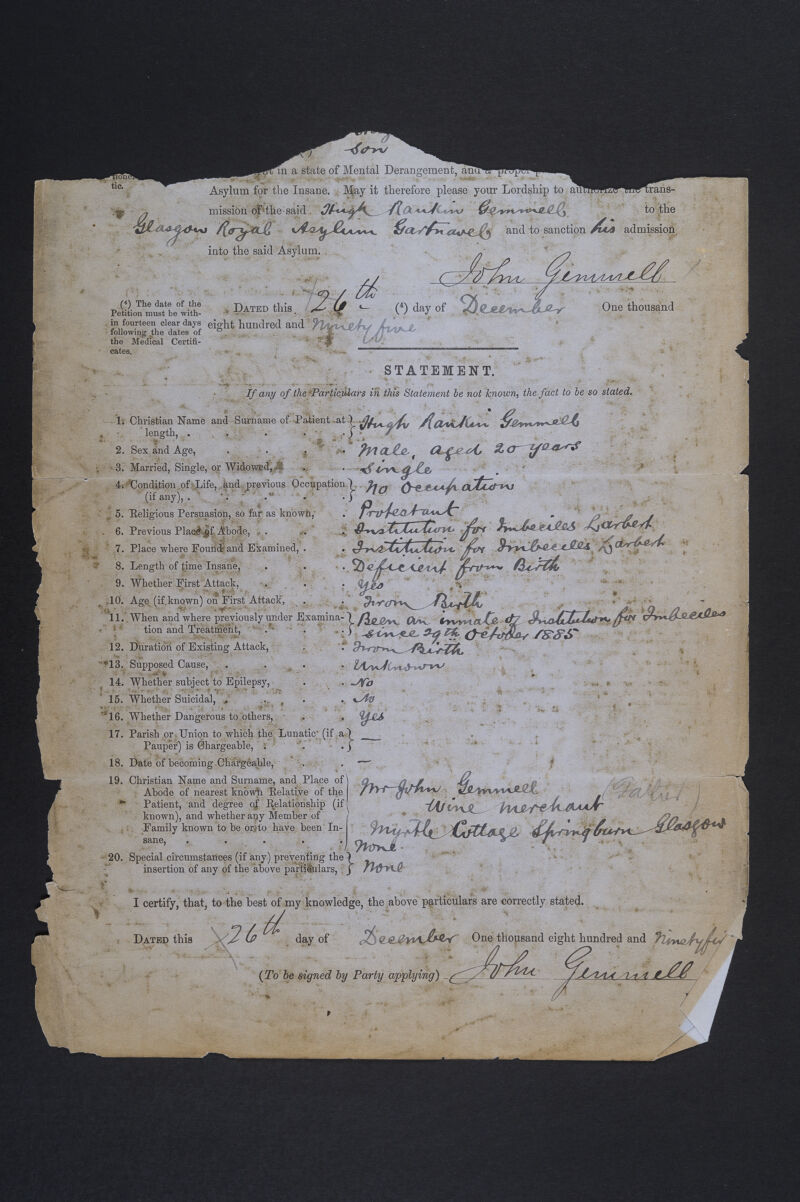 son
in a state of Mental Derangement, and a proper
tic.
Asylum for the Insane. May it therefore please your Lordship to authorize the trans-
mission of the said Hugh Rankin Gemmell to the
Glasgow Royal Asylum Gartnavel and to sanction his admission
into the said Asylum.
John Gemmell
(4) The date of the
Petition must be with-
in fourteen clear days
following the dates of
the Medical Certifi-
cates.
DATED this 26th (4) day of December One thousand
eight hundred and Ninety five
STATEMENT.
If any of the Particulars in this Statement be not known, the fact to be so stated.
1. Christian Name and Surname of Patient at
length, . Hugh Rankin Gemmell
2. Sex and Age, Male, aged 20 years
3. Married, Single, or Widowed, Single
4. Condition of Life, and previous Occupation
(if any), . No Occupation
5. Religious Persuasion, so far as known, Protestant
6. Previous Place of Abode, Institution for Imbeciles Larbert
7. Place where Found and Examined, Institution for Imbeciles Larbert
8. Length of time Insane, Deficient from Birth
9. Whether First Attack, Yes
10. Age (if known) on First Attack, From Birth
11. When and where previously under Examina- Been an inmate of Institution for Imbeciles
tion and Treatment, since 29th October 1885
12. Duration of Existing Attack, From Birth
13. Supposed Cause, Unknown
14. Whether subject to Epilepsy, No
15. Whether Suicidal, No
16. Whether Dangerous to others, Yes
17. Parish or Union to which the Lunatic (if a
Pauper) is Chargeable, —
18. Date of becoming Chargeable, —
19. Christian Name and Surname, and Place of
Abode of nearest known Relative of the
Patient, and degree of Relationship (if
known), and whether any Member of
Family known to be or to have been In-
sane,
Mr John Gemmell (Father)
Wine Merchant
Myrtle Cottage Springburn Glasgow
None
20. Special circumstances (if any) preventing the
insertion of any of the above particulars, None
I certify, that, to the best of my knowledge, the above particulars are correctly stated.
DATED this 26th day of December One thousand eight hundred and
(To be signed by Party applying) John Gemmell